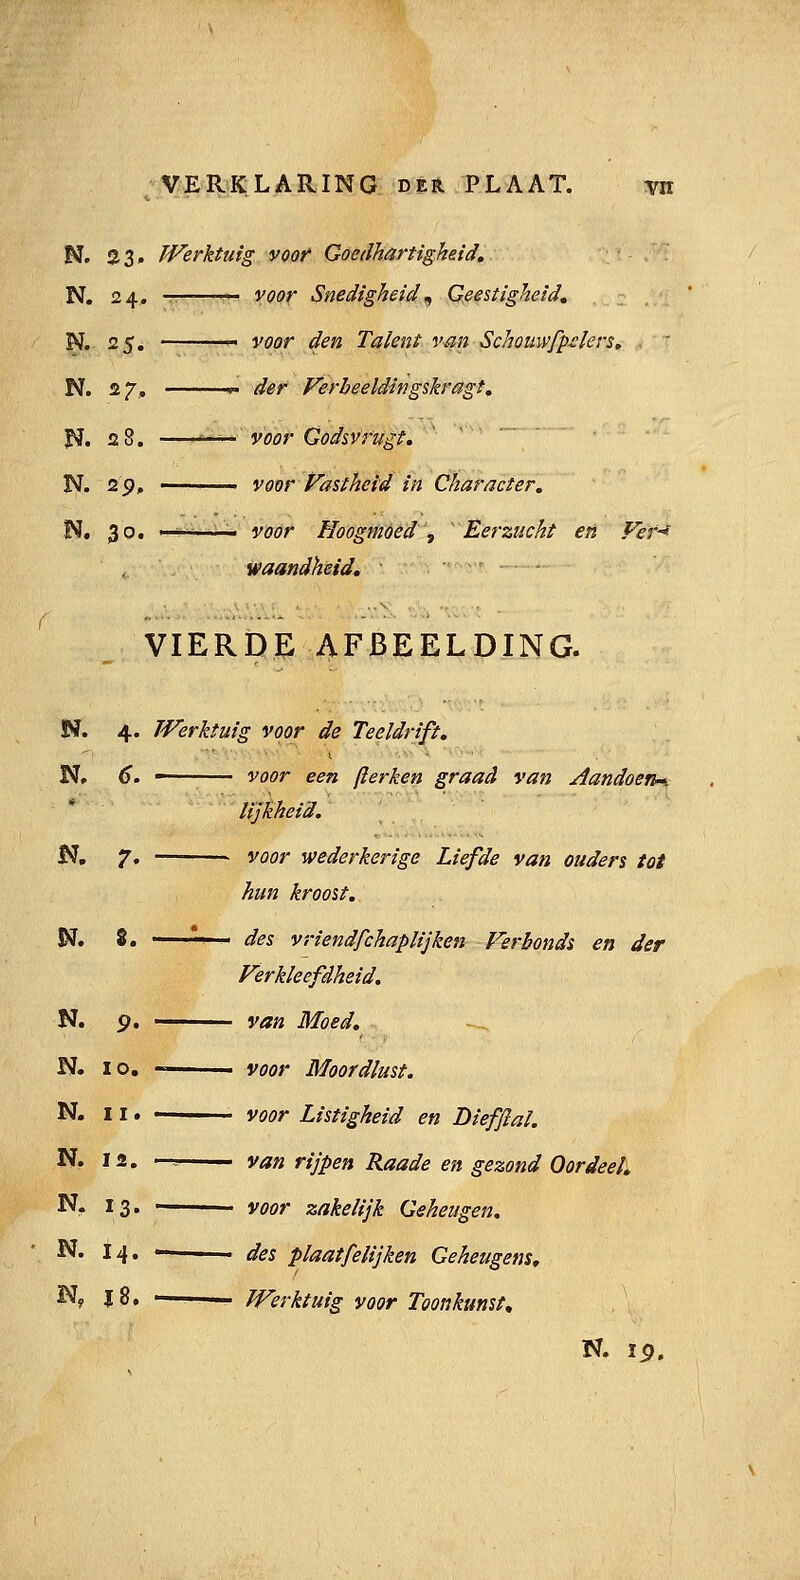 VERKLARING DER PLAAT. VII
N. 23. Werktuig voor Goedhartigheid.
N. 24. ——— voor Snedigheid, Geestigheid.
N. 25. ——— voor den Talent van Schouwſpelers.
N. 27. ——— der Verbeeldingskragt.
N. 28. ——— voor Godsvrugt.
N. 29. ——— voor Vastheid in Character.
N. 30. ——— voor Hoogmoed, Eerzucht en Ver-
waandheid.
VIERDE AFBEELDING.
N. 4. Werktuig voor de Teeldrift.
N. 6. ——— voor een ſterken graad van Aandoen-
lijkheid.
N. 7. ——— voor wederkerige Liefde van ouders tot
hun kroost.
N. 8. ——— des vriendſchaplijken Verbonds en der
Verkleefdheid.
N. 9. ——— van Moed.
N. 10. ——— voor Moordlust.
N. 11. ——— voor Listigheid en Diefſtal.
N. 12. ——— van rijpen Raade en gezond Oordeel.
N. 13. ——— voor zakelijk Geheugen.
N. 14. ——— des plaatſelijken Geheugens.
N. 18. ——— Werktuig voor Toonkunst.
N. 19.